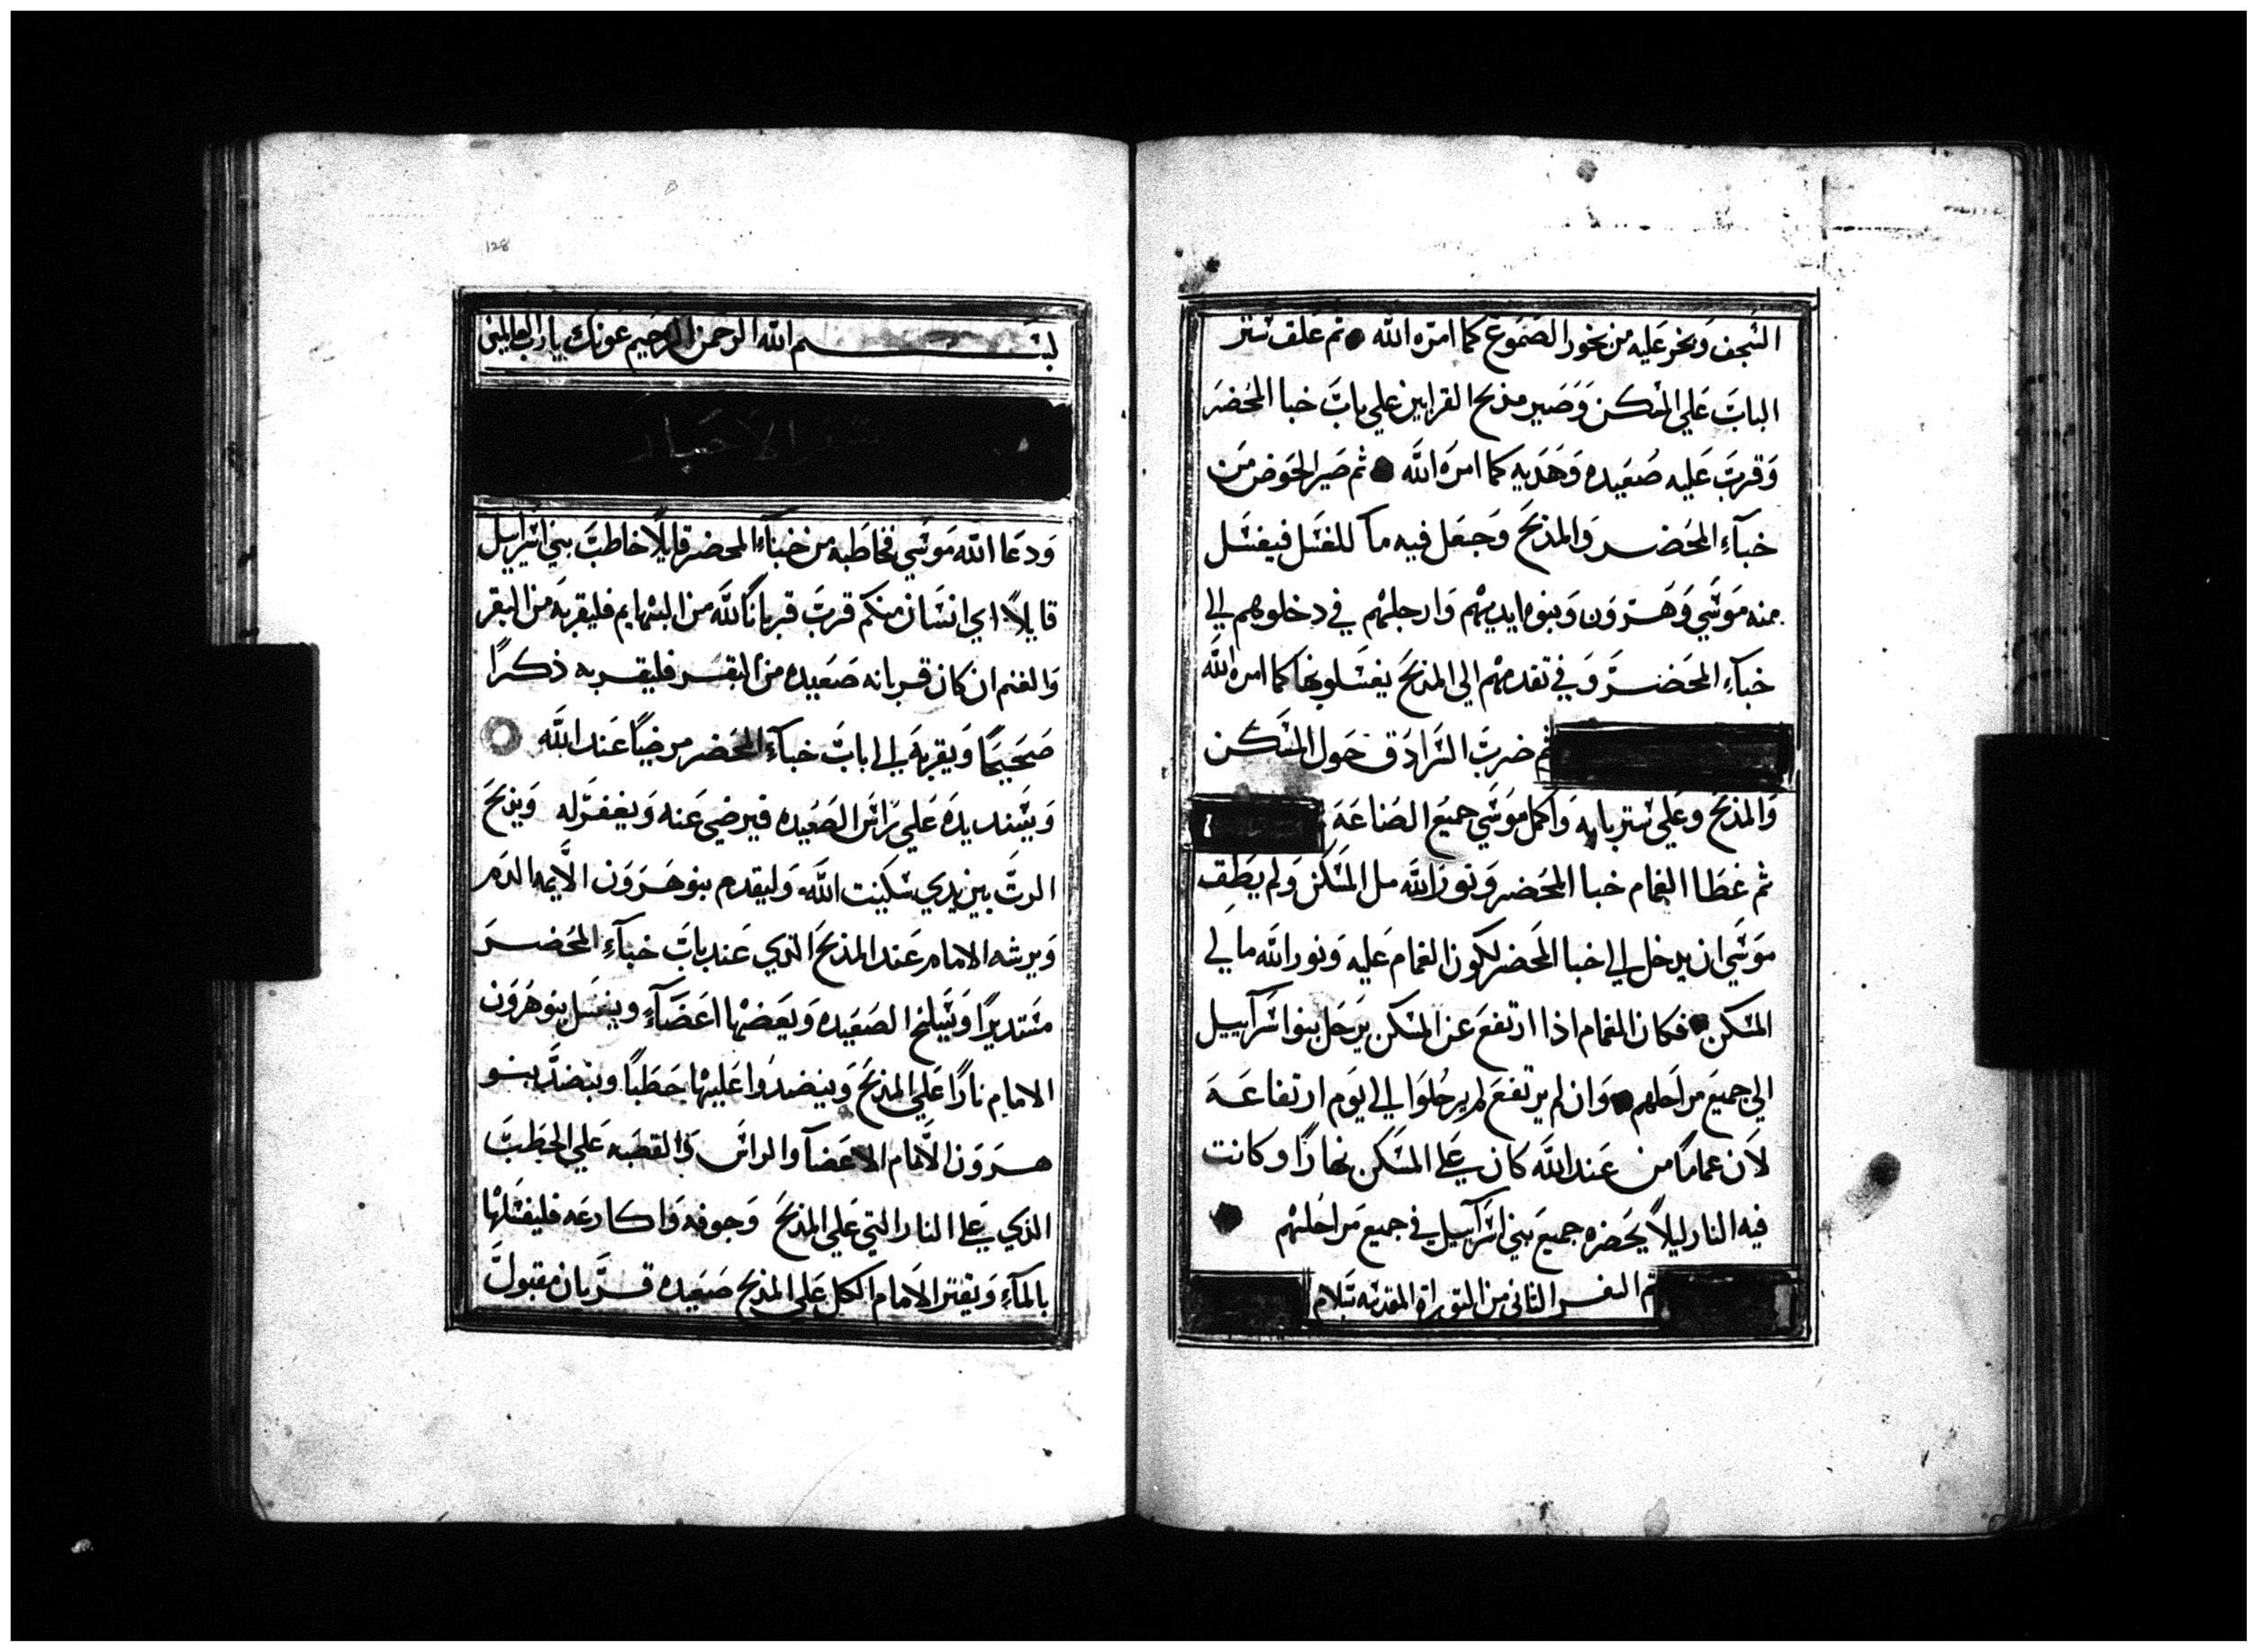 السجف وبخر عليه من بخور الصموغ كما امره الله ثم علق ستر
الباب علي المسكن وصير مذبح القرابين علي باب خبا المحضر
وقرب عليه صعيده وهديه كما امره الله ثم صير الحوض من
خبآءِ المحضر والمذبح وجعل فيه مآ للغسل فيغسل
منه موسي وهرون وبنوه ايديهم وارجلهم في دخلوهم الي
خبآءِ المحضر وفي تقدمهم الي المذبح يغسلونها كما امره الله
ثم ضرب السرادق حول المسكن
والمذبح وعلي ستر بابه واكمل موسي جميع الصناعه
ثم غطا الغمام خبا المحضر ونور الله مل المسكن ولم يطق
موسي ان يدخل الي خبا المحضر لكون الغمام عليه ونور الله مالي
المسكن فكان الغمام اذا ارتفع عن المسكن يرحل بنو اسرآييل
الي جميع مراحلهم وان لم يرتفع لم يرحلوا الي يوم ارتفاعه
لان غماماً من عند الله كان علي المسكن نهارًا وكانت
فيه النار ليلاً يحضره جميع بني اسرآييل في جميع مراحلهم
تم السفر الثاني من التوراة المقدسه بسلام
128
بسم الله الرحمن الرحيم عونك يارب العالمين
سفر الاحبار
ودعا الله موسي فخاطبه من خبآءِ المحضر قايلاً خاطب بني اسراييل
قايلاً اي انسان منكم قرب قربانًا لله من البهايم فليقربه من البقر
والغنم ان كان قربانه صعيده من البقر فليقربه ذكرًا
صحيحًا ويقربه الي باب خبآءِ المحضر مرضيًا عند الله
ويسند يده علي راس الصعيده فيرضي عنه ويغفر له ويذبح
الرت بين يدي سكينت الله وليقدم بنو هرون الايمه الدم
ويرشه الامام عند المذبح الذي عند باب خبآءِ المحضر
مستديرًا ويسلخ الصعيده ويعضها اعضآءٍ ويغسل بنو هرون
الامام نارًا علي المذبح وينضدوا عليها حطبًا وينضد بنو
هرون الامام الاعضآ والراس والقصبه علي الحطب
الذي علي النار التي علي المذبح وجوفه واكارعه فليغسلها
بالمآءِ ويقتر الامام الكل علي المذبح صعيده قربان مقبول